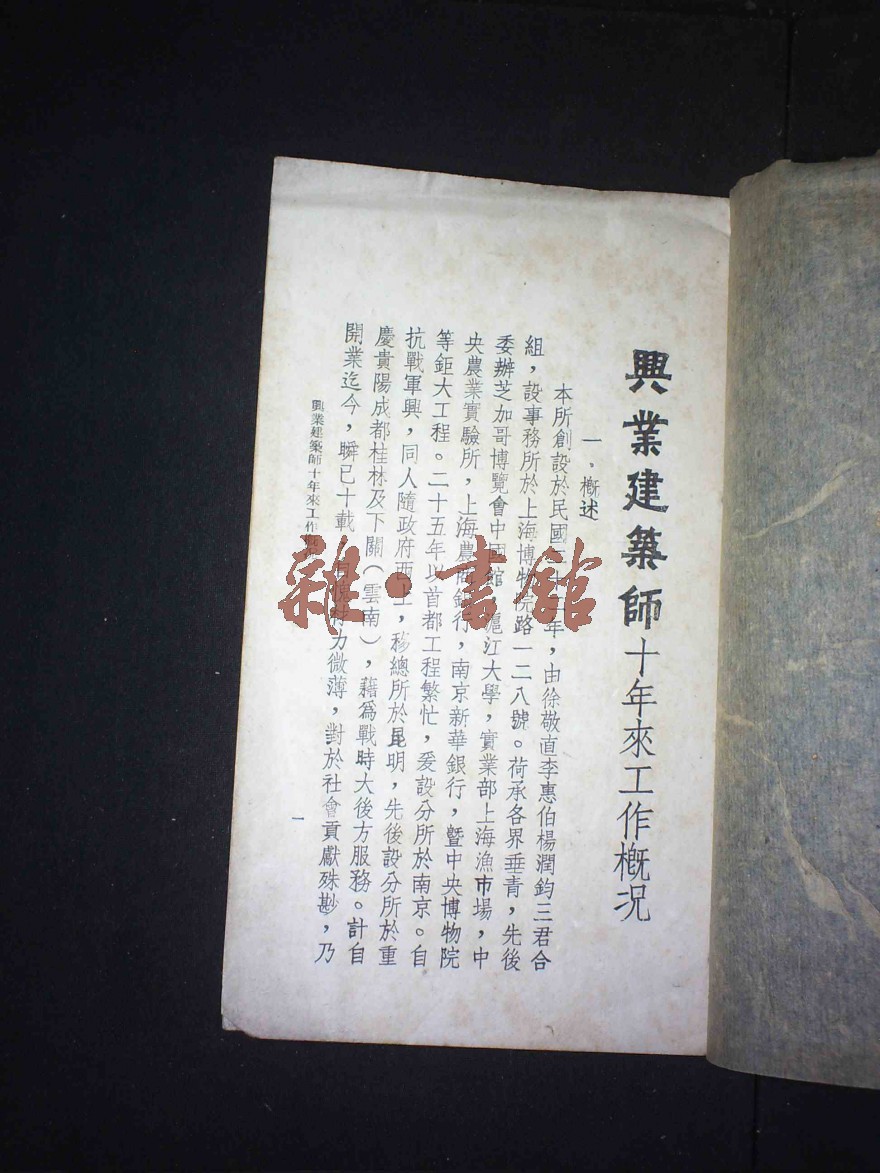 興業建築師十年來工作概況
一、概述
本所創設於民國二十二年，由徐敬直李惠伯楊潤鈞三君合
組，設事務所於上海博物院路一二八號。荷承各界垂青，先後
委辦芝加哥博覽會中國館，滬江大學，實業部上海漁市場，中
央農業實驗所，上海農商銀行，南京新華銀行，曁中央博物院
等鉅大工程。二十五年以首都工程繁忙，爰設分所於南京。自
抗戰軍興，同人隨政府西上，移總所於昆明，先後設分所於重
慶貴陽成都桂林及下關（雲南），藉爲戰時大後方服務。計自
開業迄今，瞬已十載，自愧材力微薄，對於社會貢獻殊尠，乃
興業建築師十年來工作概況
一
雜·書館